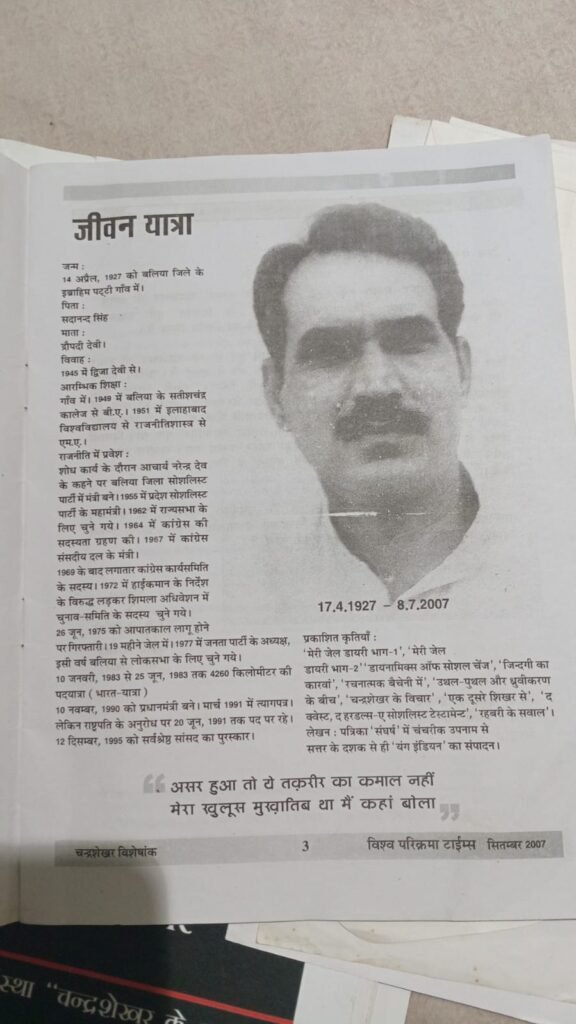 जीवन यात्रा
जन्म :
14 अप्रैल, 1927 को बलिया जिले के
इब्राहिम पट्टी गाँव में।
पिता :
सदानन्द सिंह
माता :
द्रौपदी देवी।
विवाह :
1945 में द्विजा देवी से।
आरम्भिक शिक्षा :
गाँव में। 1949 में बलिया के सतीशचंद्र
कालेज से बी.ए.। 1951 में इलाहाबाद
विश्वविद्यालय से राजनीतिशास्त्र से
एम.ए.।
राजनीति में प्रवेश :
शोध कार्य के दौरान आचार्य नरेन्द्र देव
के कहने पर बलिया जिला सोशलिस्ट
पार्टी में मंत्री बने। 1955 में प्रदेश सोशलिस्ट
पार्टी के महामंत्री। 1962 में राज्यसभा के
लिए चुने गये। 1964 में कांग्रेस की
सदस्यता ग्रहण की। 1967 में कांग्रेस
संसदीय दल के मंत्री।
1969 के बाद लगातार कांग्रेस कार्यसमिति
के सदस्य। 1972 में हाईकमान के निर्देश
के विरुद्ध लड़कर शिमला अधिवेशन में
चुनाव-समिति के सदस्य चुने गये।
26 जून, 1975 को आपातकाल लागू होने
पर गिरफ्तारी। 19 महीने जेल में। 1977 में जनता पार्टी के अध्यक्ष,
इसी वर्ष बलिया से लोकसभा के लिए चुने गये।
10 जनवरी, 1983 से 25 जून, 1983 तक 4260 किलोमीटर की
पदयात्रा (भारत-यात्रा)
10 नवम्बर, 1990 को प्रधानमंत्री बने। मार्च 1991 में त्यागपत्र।
लेकिन राष्ट्रपति के अनुरोध पर 20 जून, 1991 तक पद पर रहे।
12 दिसम्बर, 1995 को सर्वश्रेष्ठ सांसद का पुरस्कार।
17.4.1927 – 8.7.2007
प्रकाशित कृतियाँ :
'मेरी जेल डायरी भाग-1', 'मेरी जेल
डायरी भाग-2' 'डायनामिक्स ऑफ सोशल चेंज', 'जिन्दगी का
कारवां', 'रचनात्मक बैचेनी में', 'उथल-पुथल और ध्रुवीकरण
के बीच', 'चन्द्रशेखर के विचार', 'एक दूसरे शिखर से', 'द
क्वेस्ट, द हरडल्स-ए सोशलिस्ट टेस्टामेन्ट', 'रहबरी के सवाल'।
लेखन : पत्रिका 'संघर्ष' में चंचरीक उपनाम से
सत्तर के दशक से ही 'यंग इंडियन' का संपादन।
“ असर हुआ तो ये तक़रीर का कमाल नहीं
मेरा ख़ुलूस मुख़ातिब था मैं कहां बोला ”
चन्द्रशेखर विशेषांक 3 विश्व परिक्रमा टाईम्स सितम्बर 2007
स्था "चन्द्रशेखर के